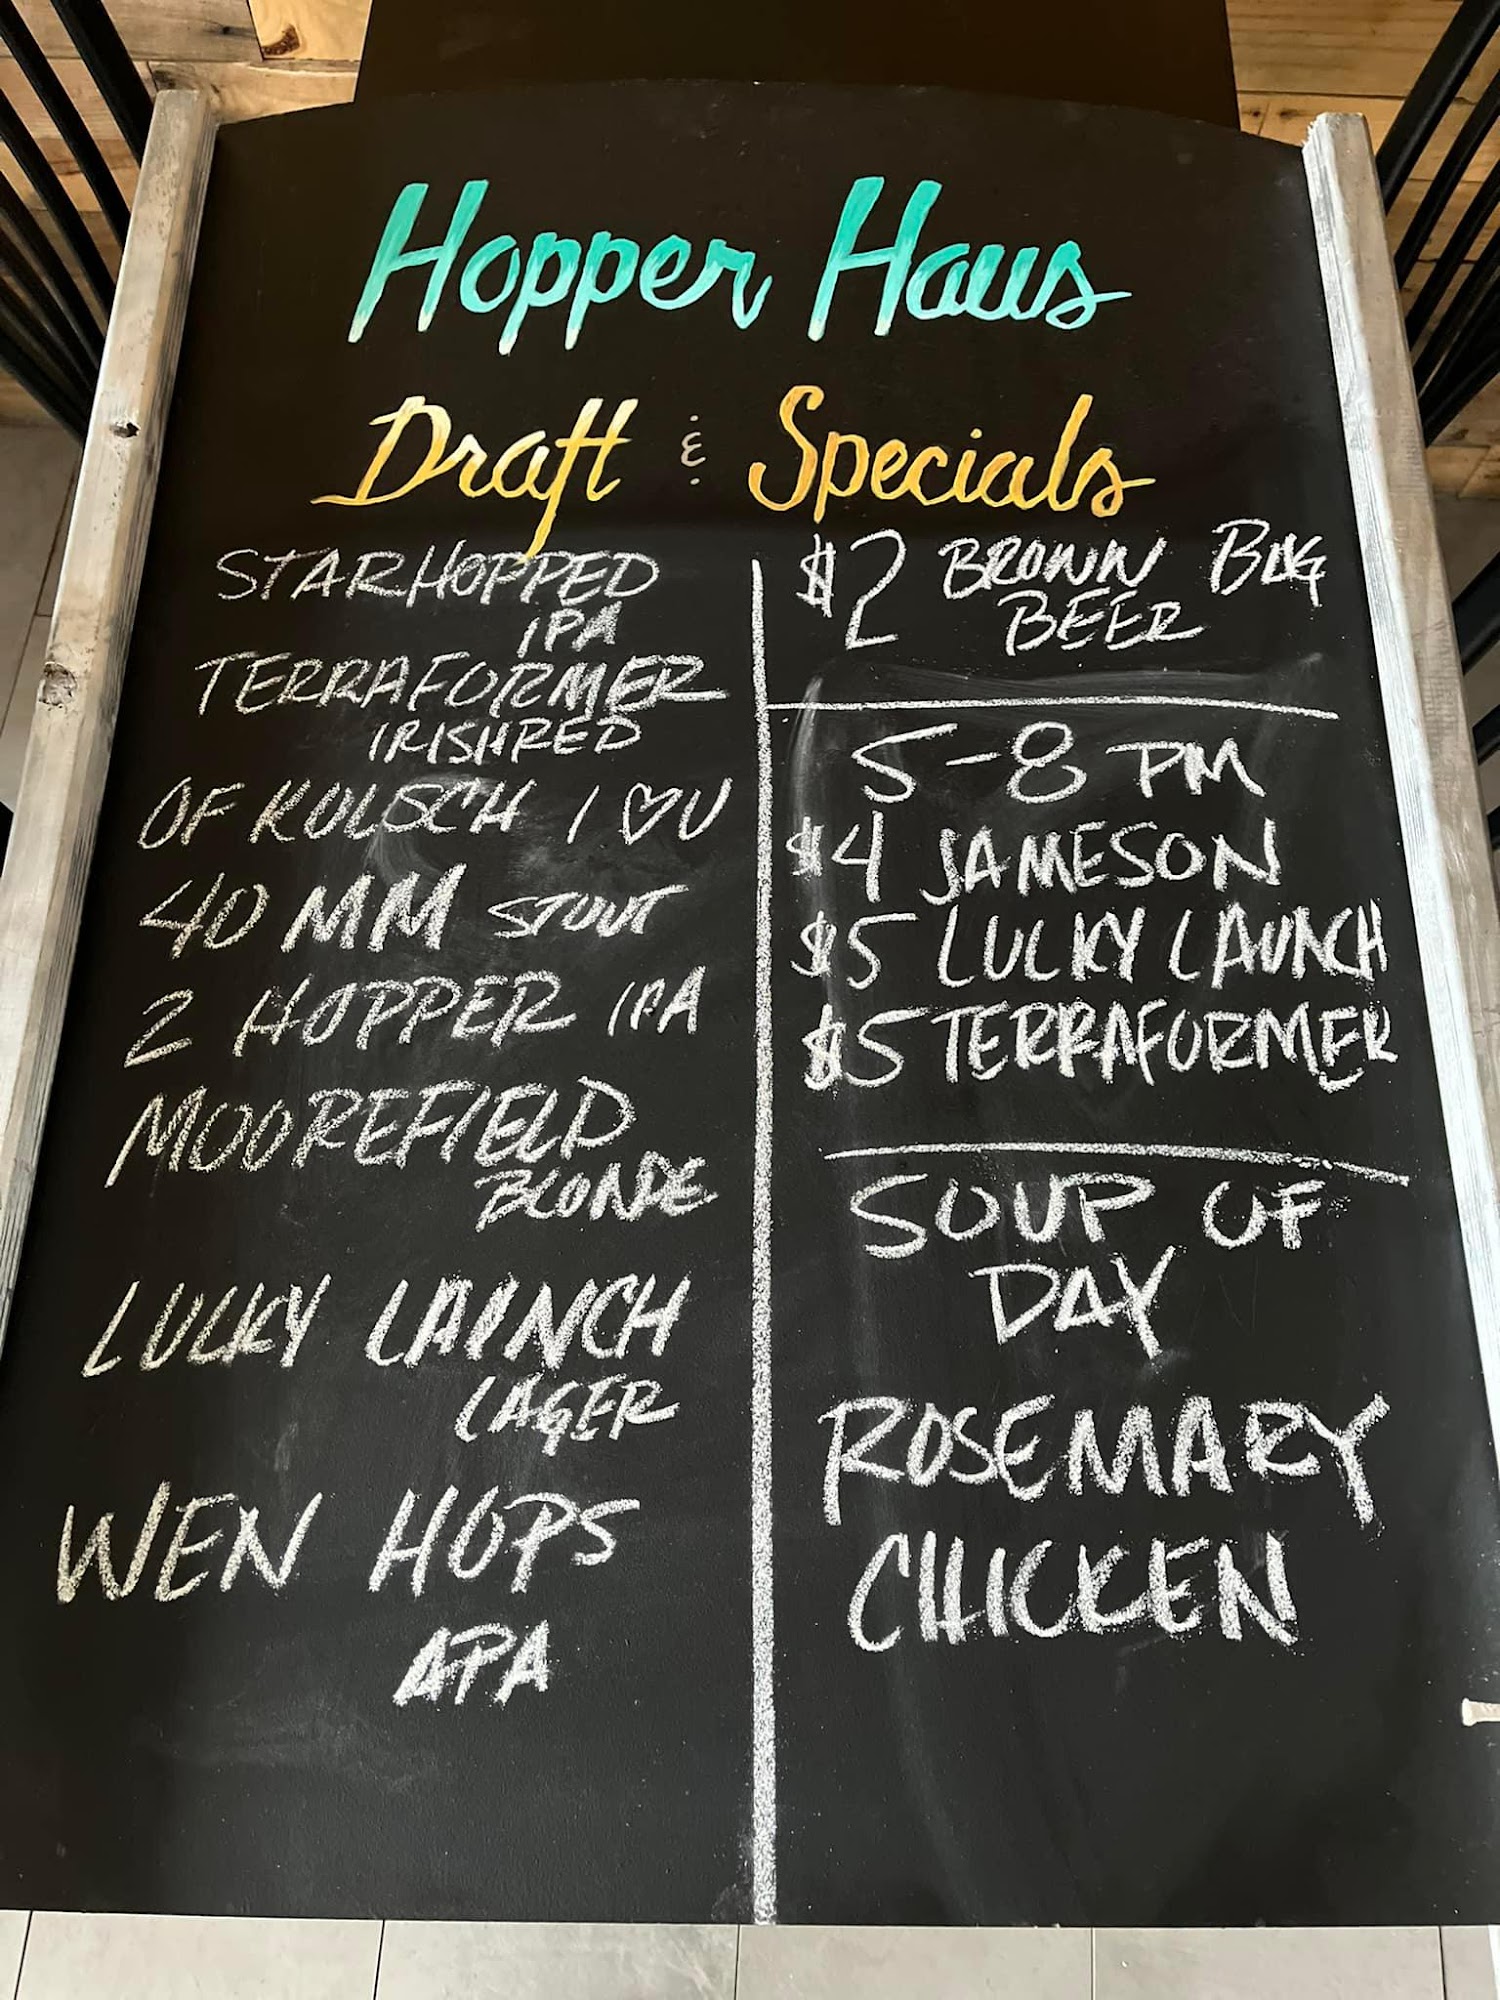 Hopper Haus
Draft & Specials
STARHOPPED
IPA
TERRAFORMER
IRISHRED
OF KOLSCH I ♡ U
40 MM STOUT
2 HOPPER IPA
MOOREFIELD
BLONDE
LUCKY LAUNCH
LAGER
WEN HOPS
APA
$2 BROWN BAG
BEER
5-8 PM
$4 JAMESON
$5 LUCKY LAUNCH
$5 TERRAFORMER
SOUP OF
DAY
ROSEMARY
CHICKEN